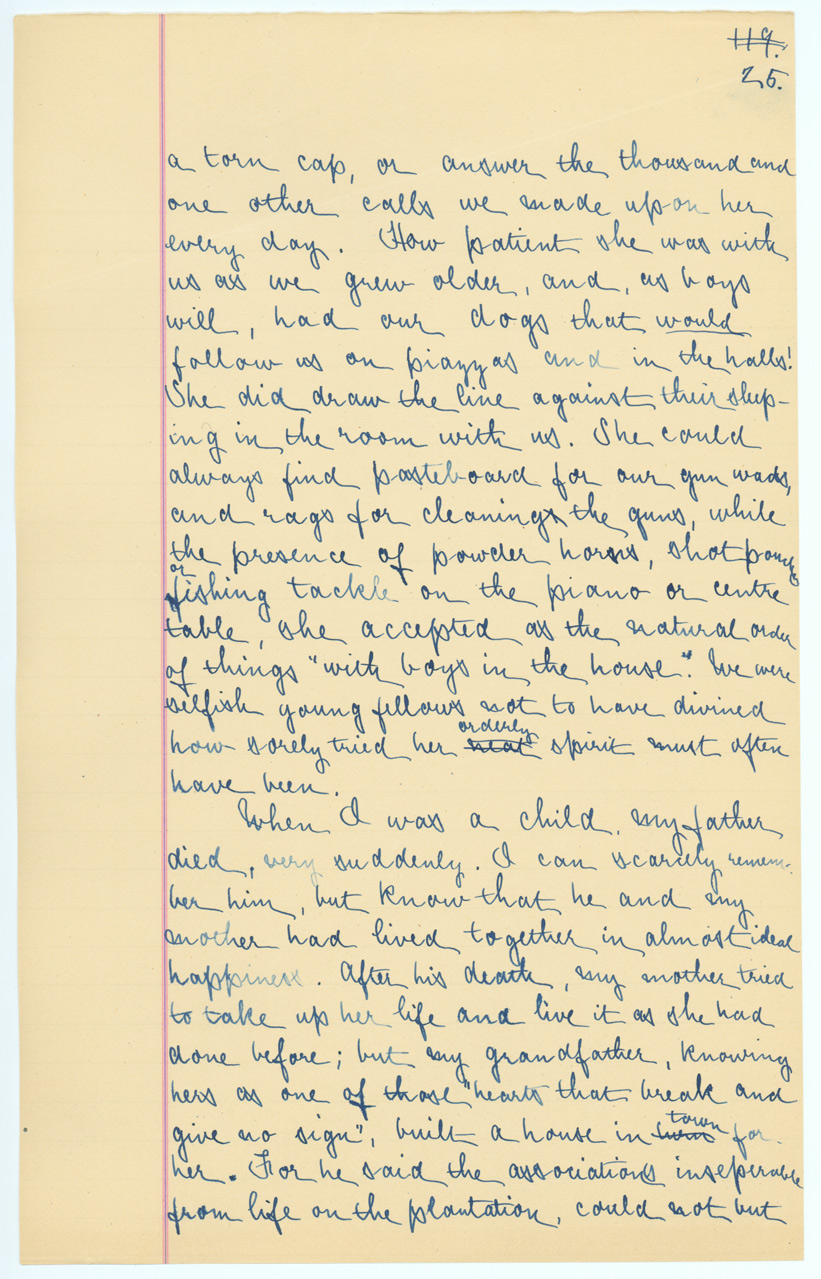 119.
25.
a torn cap, or answer the thousand and
one other calls we made upon her
every day. How patient she was with
us as we grew older, and, as boys
will, had our dogs that would
follow us on piazzas and in the halls!
She did draw the line against their sleep-
ing in the room with us. She could
always find pasteboard for our gun wads,
and rags for cleaning the guns, while
the presence of powder horns, shot pouches
or
fishing tackle on the piano or centre
table, she accepted as the natural order
of things "with boys in the house". We were
selfish young fellows not to have divined
orderly
how sorely tried her neat spirit must often
have been.
When I was a child, my father
died, very suddenly. I can scarcely remem-
ber him, but know that he and my
mother had lived together in almost ideal
happiness. After his death, my mother tried
to take up her life and live it as she had
done before; but my grandfather, knowing
hers as one of those "hearts that break and
town
give no sign", built a house in for
her. For he said the associations inseperable
from life on the plantation, could not but